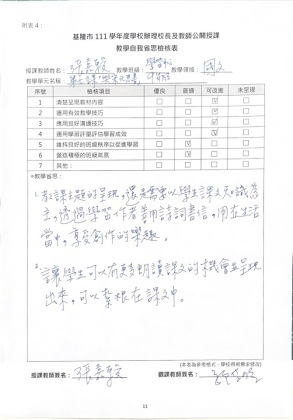 附表 4：
基隆市 111 學年度學校辦理校長及教師公開授課
教學自我省思檢核表
授課教師姓名： 教學班級： 教學領域：國文
教學單元名稱：
序號 檢核項目 優良 普通 可改進 未呈現
1 清楚呈現教材內容 ✓
2 運用有效教學技巧 ✓
3 應用良好溝通技巧 ✓
4 運用學習評量評估學習成效 ✓
5 維持良好的班級秩序以促進學習 ✓
6 營造積極的班級氣氛 ✓
7 其他：
※教學省思：
1. 教課主題的呈現，還是需要以學生課文知識為
主，透過學習作者善用詩詞書信，用在生活
當中，享受創作的樂趣。
2. 讓學生可以有更多朗讀課文的機會並呈現
出來，可以紮根在課文中。
(本表為參考格式，學校得視需求修改)
授課教師姓名： 觀課教師姓名：
11